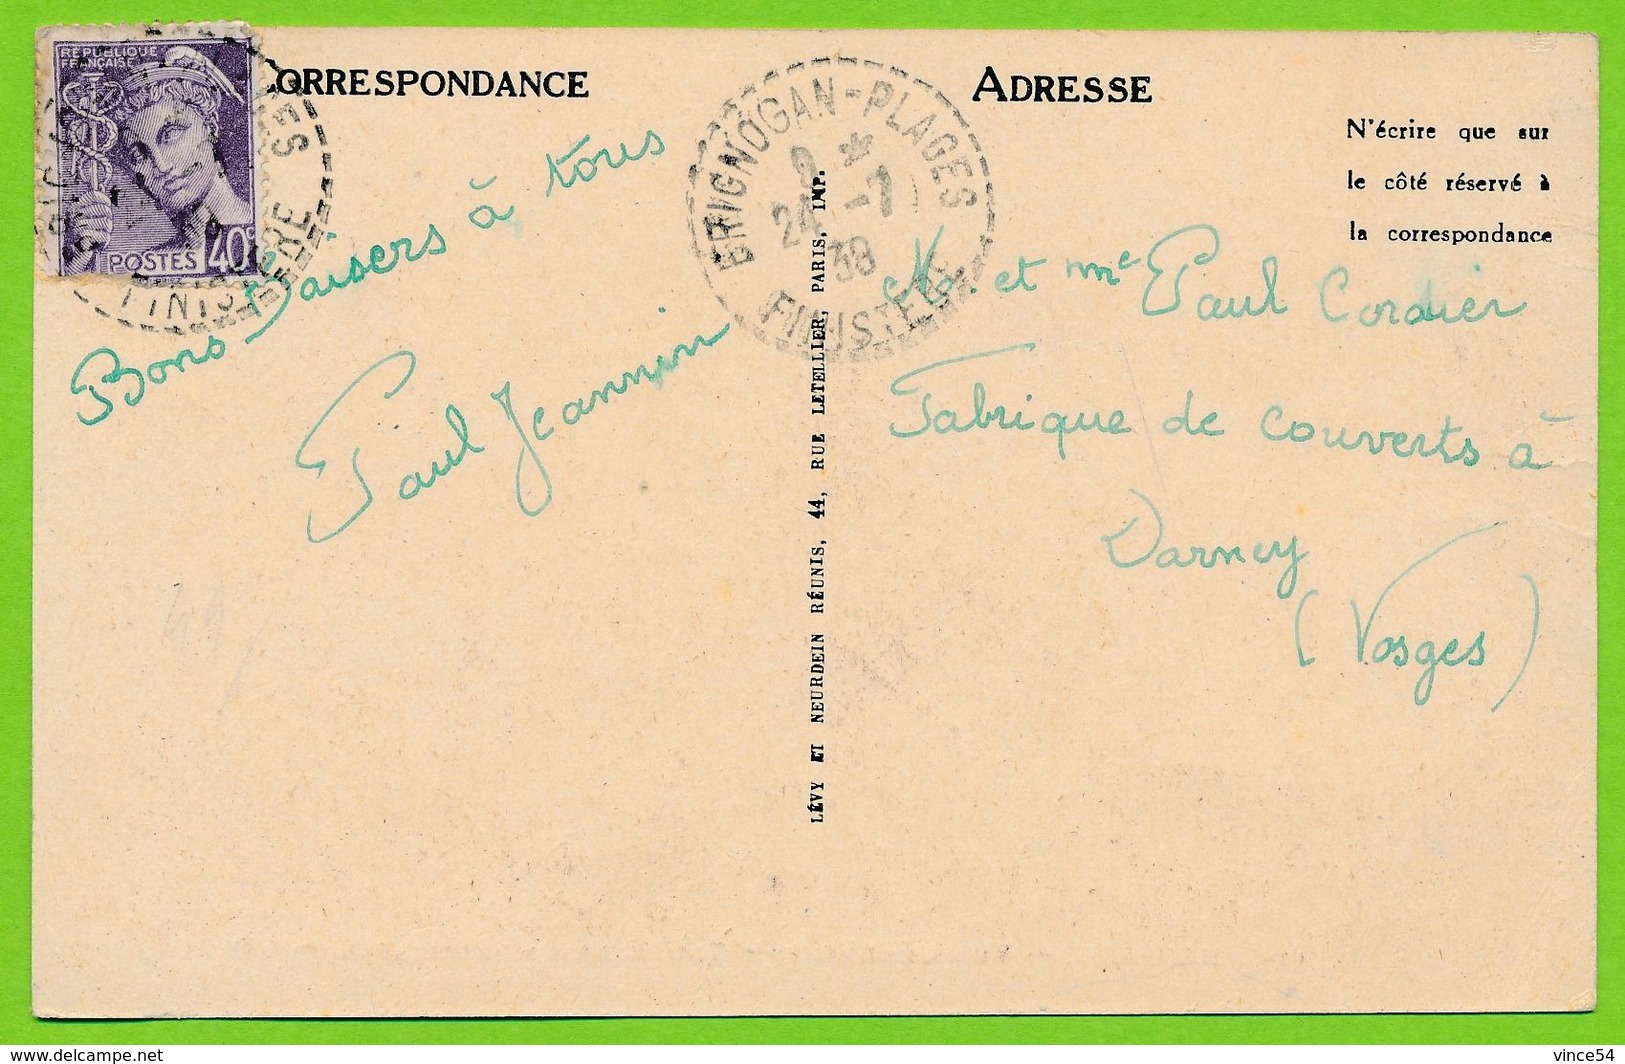 RÉPUBLIQUE
FRANÇAISE
POSTES 40c
CORRESPONDANCE
ADRESSE
N'écrire que sur
le côté réservé à
la correspondance
BRIGNOGAN-PLAGES
24 -7
38
FINISTERE
Bons Baisers à tous
Paul Jeannin
LÉVY ET NEURDEIN RÉUNIS, 44, RUE LETELLIER, PARIS, IMP.
M. et Me Paul Cordier
Fabrique de couverts à
Darney
(Vosges)
delcampe.net
vince54